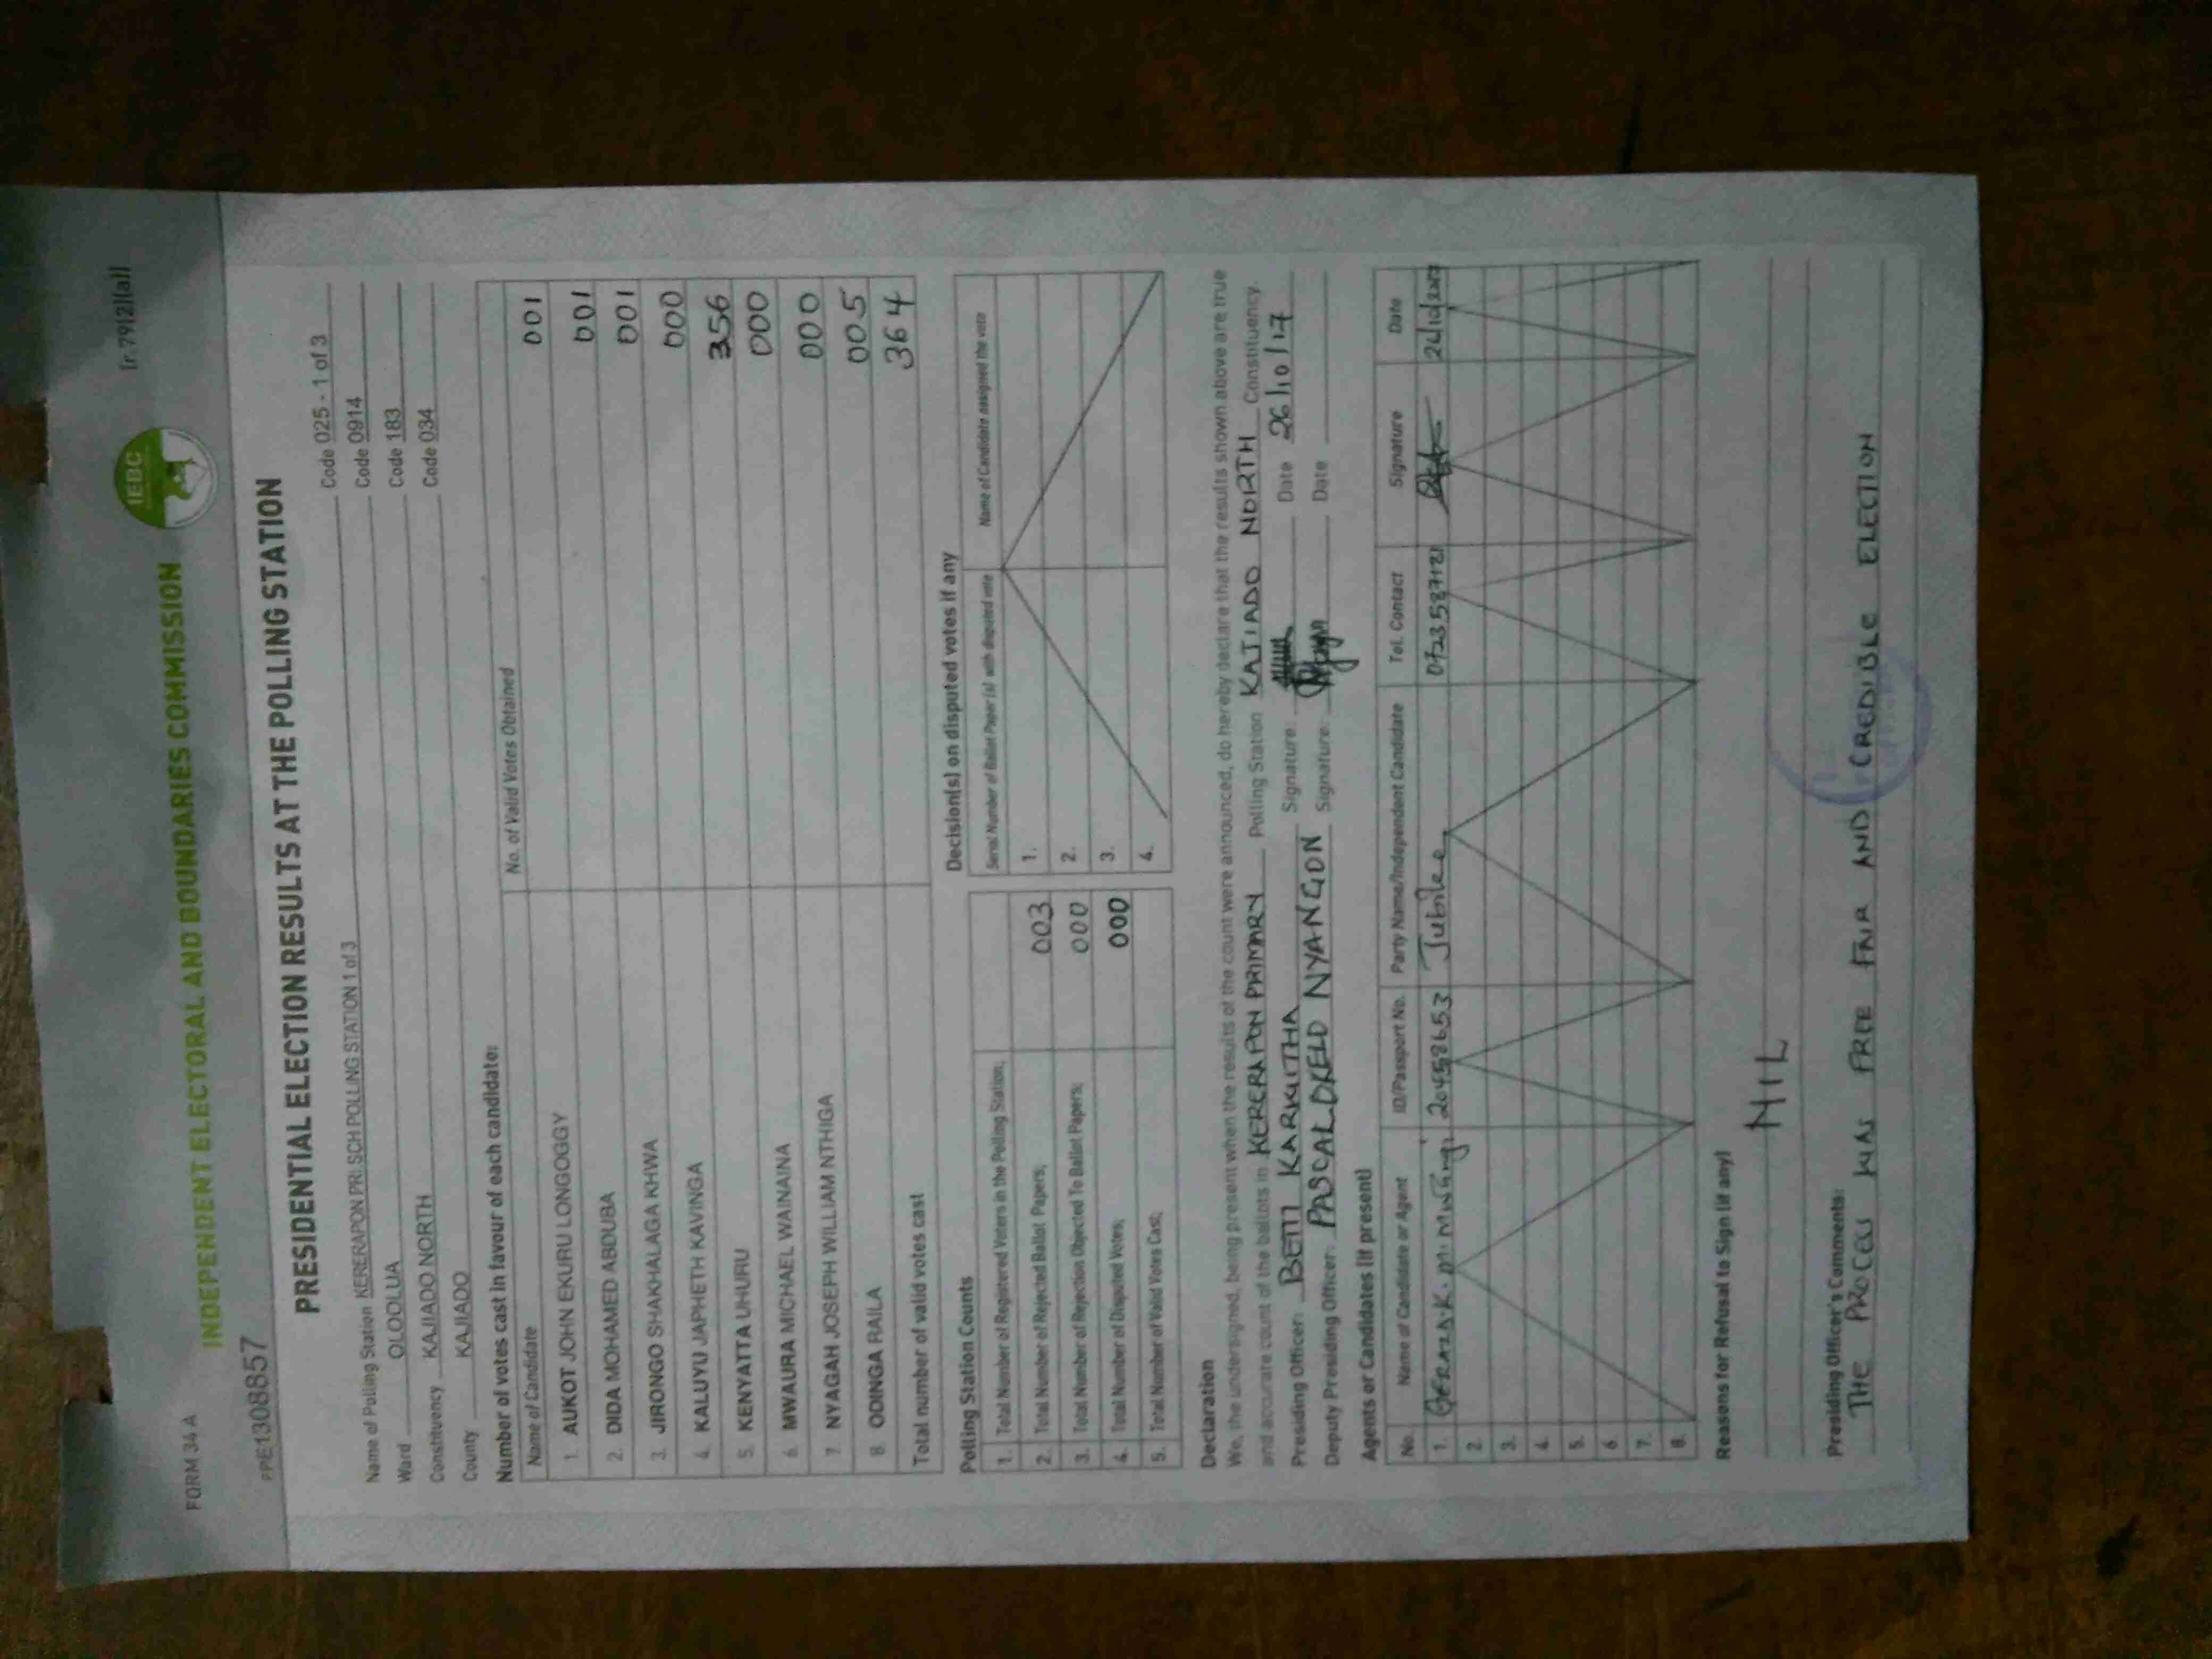 FORM 34 A
fr. 79(2)(a)]
INDEPENDENT ELECTORAL AND BOUNDARIES COMMISSION
IEBC
PPE1308857
PRESIDENTIAL ELECTION RESULTS AT THE POLLING STATION
Name of Polling Station KERERAPON PRI SCH POLLING STATION 1 of 3 Code 025 - 1 of 3
Ward OLOOLUA Code 0914
Constituency KAJIADO NORTH Code 183
County KAJIADO Code 034
Number of votes cast in favour of each candidate:
Name of Candidate No. of Valid Votes Obtained
1. AUKOT JOHN EKURU LONGOGGY 001
2. DIDA MOHAMED ABDUBA 001
3. JIRONGO SHAKHALAGA KHWA 001
4. KALUYU JAPHETH KAVINGA 000
5. KENYATTA UHURU 356
6. MWAURA MICHAEL WAINAINA 000
7. NYAGAH JOSEPH WILLIAM NTHIGA 000
8. ODINGA RAILA 005
Total number of valid votes cast 364
Polling Station Counts
1. Total Number of Registered Voters in the Polling Station;
2. Total Number of Rejected Ballot Papers; 003
3. Total Number of Rejection Objected To Ballot Papers; 000
4. Total Number of Disputed Votes; 000
5. Total Number of Valid Votes Cast;
Decision(s) on disputed votes if any
Serial Number of Ballot Paper (s) with disputed vote Name of Candidate assigned the vote
1.
2.
3.
4.
Declaration
We, the undersigned, being present when the results of the count were announced, do hereby declare that the results shown above are true
and accurate count of the ballots in KERERAPON PRIMARY Polling Station KAJIADO NORTH Constituency.
Presiding Officer: BETTI KARKUTHA Signature: Date 26/10/17
Deputy Presiding Officer: PASCAL OKELO NYANGON Signature: Date
Agents or Candidates (if present)
No. Name of Candidate or Agent ID/Passport No. Party Name/Independent Candidate Tel. Contact Signature Date
1. Jubilee
2.
3.
4.
5.
6.
7.
8.
Reasons for Refusal to Sign (if any)
NIL
Presiding Officer's Comments:
THE PROCESS WAS FREE FAIR AND CREDIBLE ELECTION